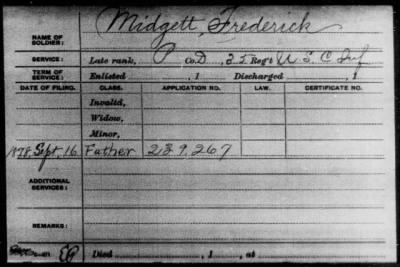 NAME OF SOLDIER: Midgett, Frederick
SERVICE: Late rank, P Co. D, 35 Reg't U S C Inf
TERM OF SERVICE: Enlisted , 1 Discharged , 1
DATE OF FILING. CLASS. APPLICATION NO. LAW. CERTIFICATE NO.
Invalid,
Widow,
Minor,
1878. Sept. 16 Father 239.267
ADDITIONAL SERVICES:
REMARKS:
Died , 1 , at